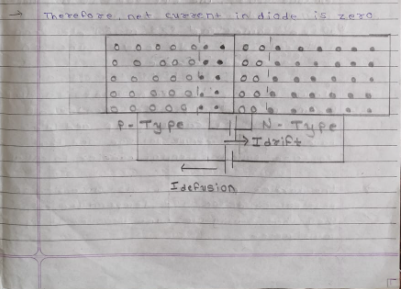 → Therefore, net current in diode is zero
P - Type N - Type
Idrift
Idefusion